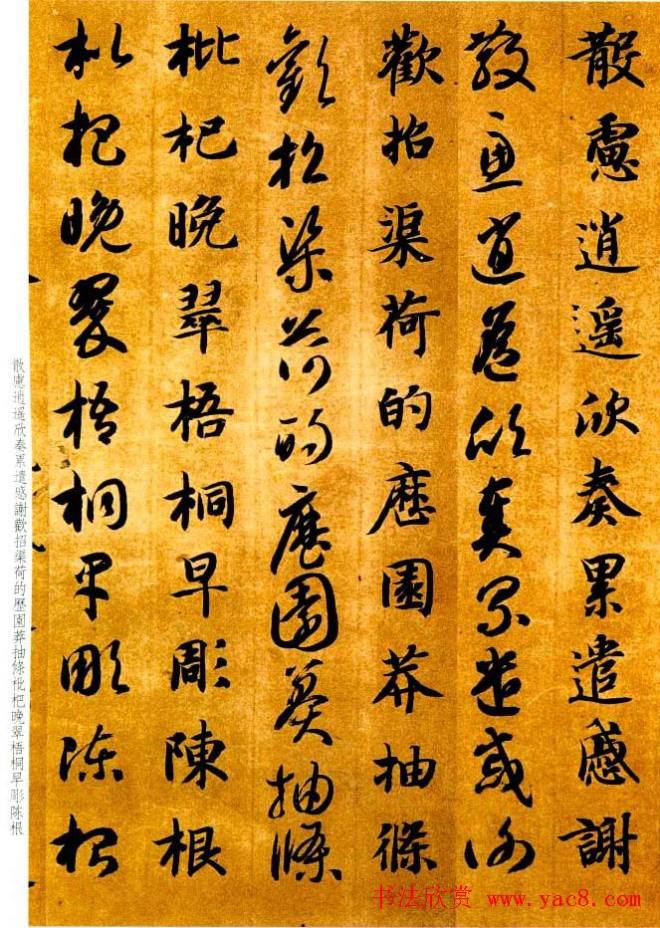 散慮逍遥欣奏累遣感謝
散慮逍遥欣奏累遣感謝
歡招渠荷的歷園莽抽條
歡招渠荷的歷園莽抽條
枇杷晚翠梧桐早彫陳根
枇杷晚翠梧桐早彫陳根
散慮逍遥欣奏累遣感謝歡招渠荷的歷園莽抽條枇杷晚翠梧桐早彫陈根
书法欣赏 www.yac8.com